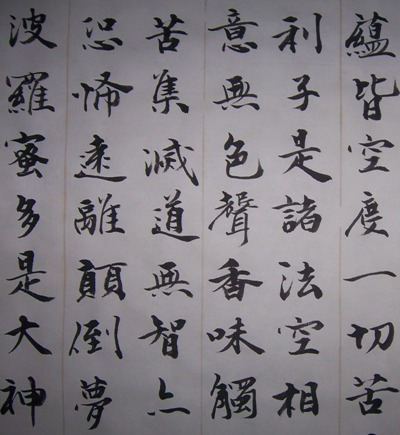 蘊皆空度一切苦
利子是諸法空相
意無色聲香味觸
苦集滅道無智亦
恐怖遠離顛倒夢
波羅蜜多是大神